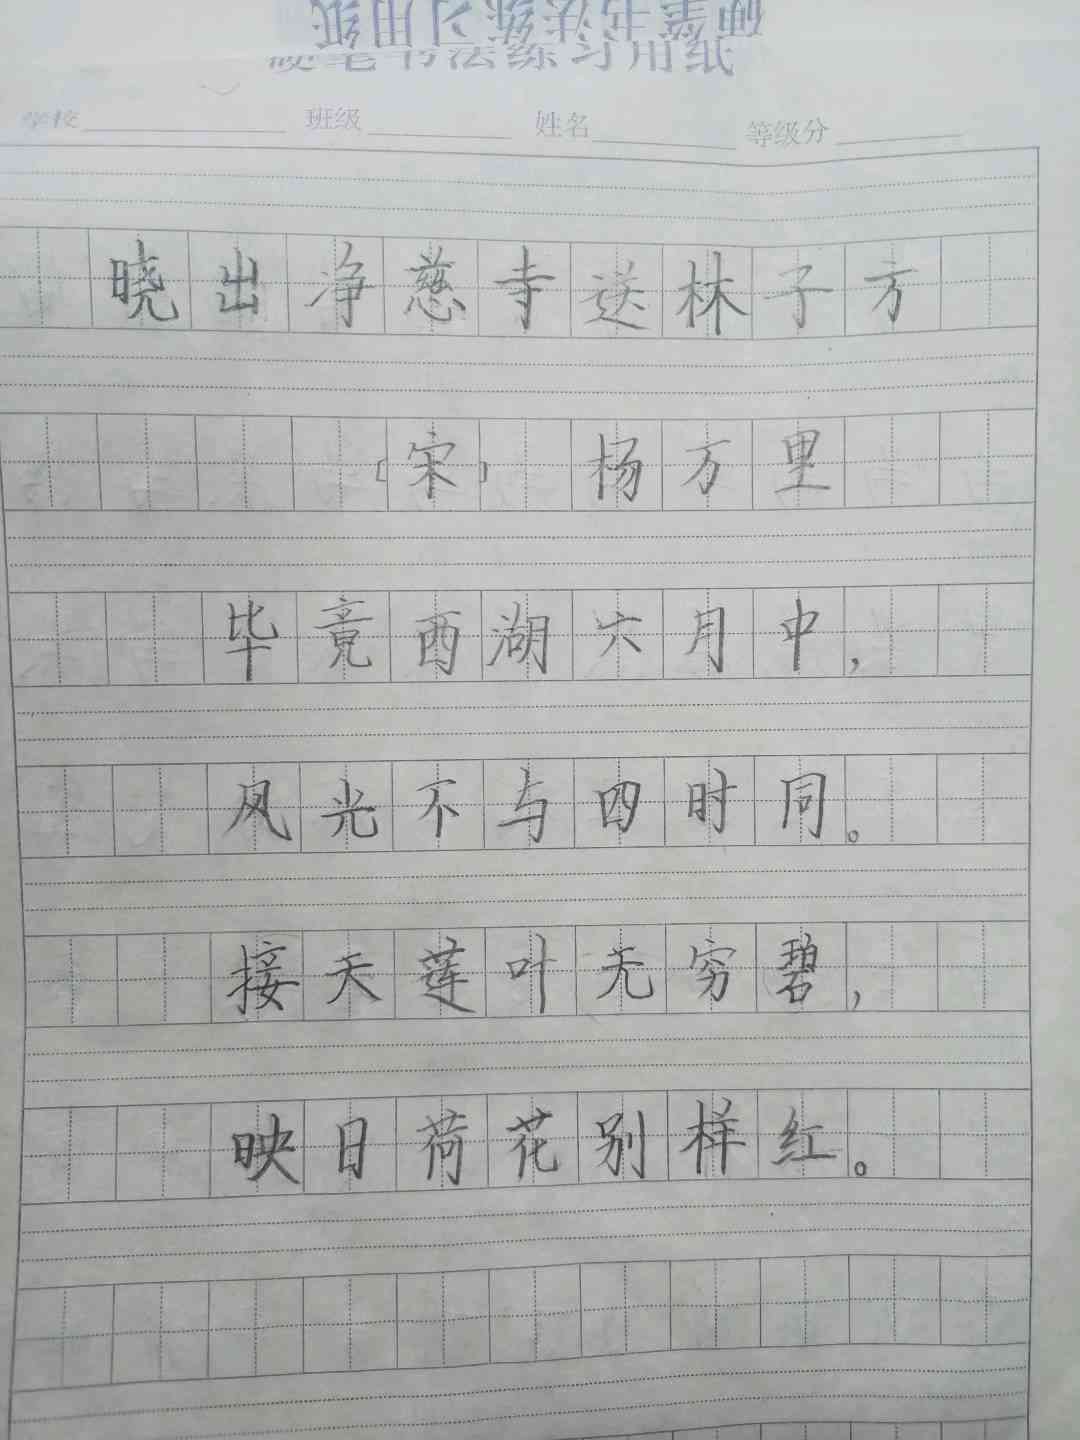 硬笔书法练习用纸
硬笔书法练习用纸
学校 班级 姓名 等级分
晓出净慈寺送林子方
[宋] 杨万里
毕竟西湖六月中,
风光不与四时同。
接天莲叶无穷碧,
映日荷花别样红。